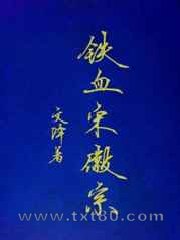 铁血宋徽宗
文泽著
www.txt80.com